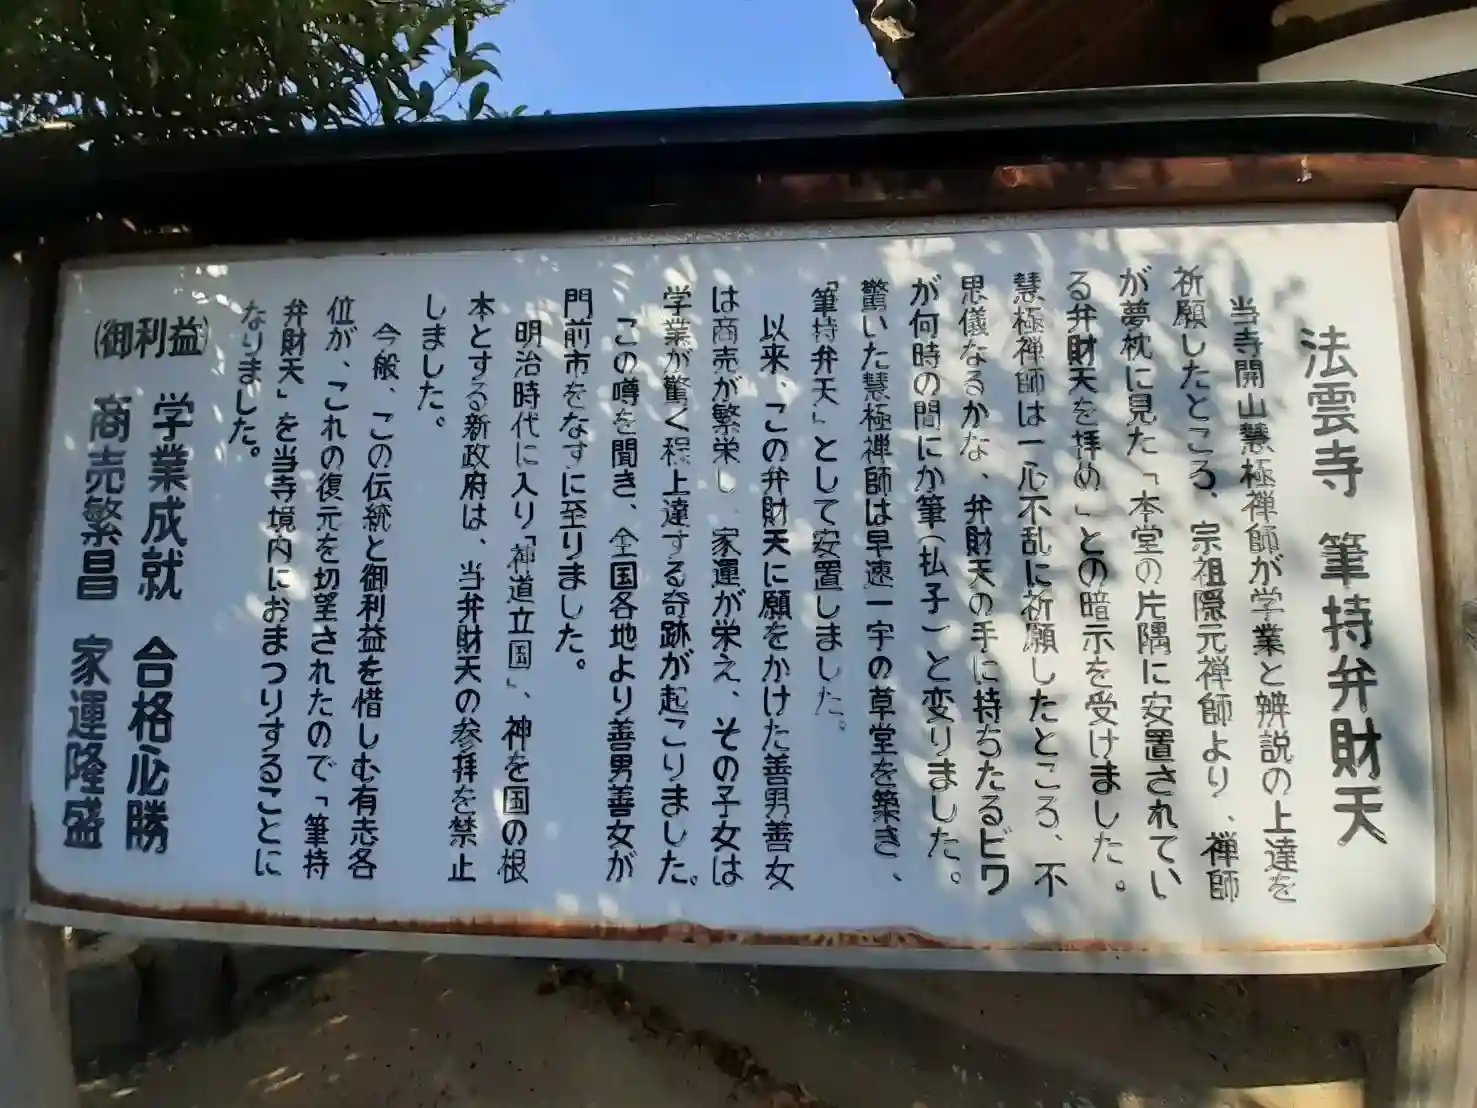 法雲寺 筆持弁財天
当寺開山慧極禅師が学業と辨説の上達を
祈願したところ、宗祖隠元禅師より、禅師
が夢枕に見た「本堂の片隅に安置されてい
る弁財天を拝め」との暗示を受けました。
慧極禅師は一心不乱に祈願したところ、不
思儀なるかな、弁財天の手に持ちたるビワ
が何時の間にか筆(払子)と変りました。
驚いた慧極禅師は早速一宇の草堂を築き、
「筆持弁天」として安置しました。
以来、この弁財天に願をかけた善男善女
は商売が繁栄し、家運が栄え、その子女は
学業が驚く程上達する奇跡が起こりました。
この噂を聞き、全国各地より善男善女が
門前市をなすに至りました。
明治時代に入り「神道立国」、神を国の根
本とする新政府は、当弁財天の参拝を禁止
しました。
今般、この伝統と御利益を惜しむ有志各
位が、これの復元を切望されたので「筆持
弁財天」を当寺境内におまつりすることに
なりました。
(御利益) 学業成就 合格必勝
商売繁昌 家運隆盛